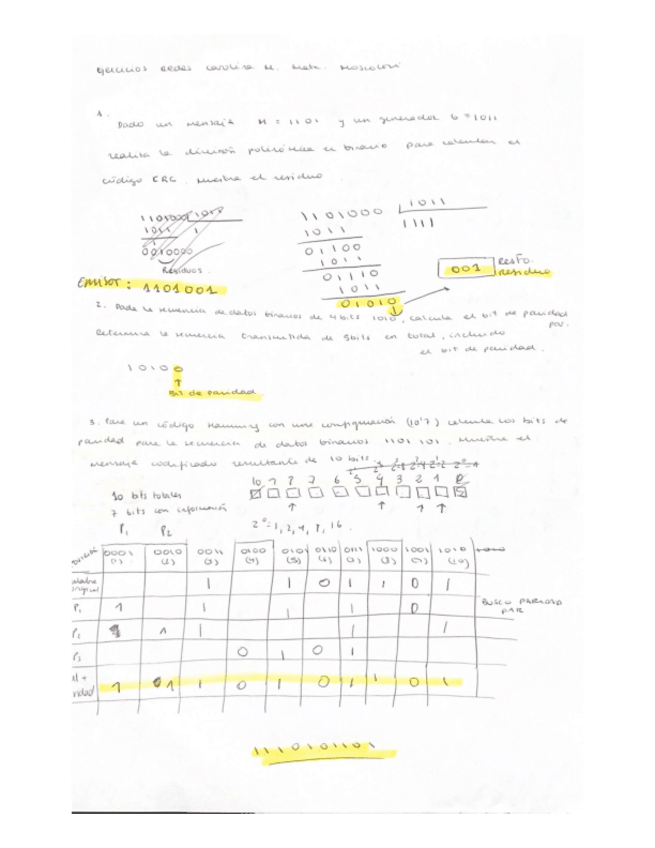 ejercicios Redes Carolina M.
1.
Dado un mensaje M = 1101 y un generador G = 1011
realiza la división polinómica en binario para calcular el
código CRC. Muestre el residuo.
1101000 1011
1011 1
0010000
Residuos.
1101000 1011
1011 1111
01100
1011
01110
1011
01010
001 Resto. residuo
Emisor: 1101001
2. Dada la secuencia de datos binarios de 4 bits 1010, calcula el bit de paridad
par.
Determine la secuencia transmitida de 5 bits en total, incluido
el bit de paridad.
10100
Bit de paridad
3. Para un código Hamming con una configuración (10,7) calcula los bits de
paridad para la secuencia de datos binarios 1101101. Muestre el
mensaje codificado resultante de 10 bits.
10 9 8 7 6 5 4 3 2 1 0
10 bits totales
7 bits con información
P1 P2 2^n=1,2,4,8,16.
posición 0001 (1) 0010 (2) 0011 (3) 0100 (4) 0101 (5) 0110 (6) 0111 (7) 1000 (8) 1001 (9) 1010 (10)
palabra original 1 1 0 1 1 0 1
P1 1 1 1 1 0 BUSCO PARIDAD PAR
P2 1 1 1 1
P3 0 1 0 1
1 1 1 0 1 0 1 1 0 1
1110101101